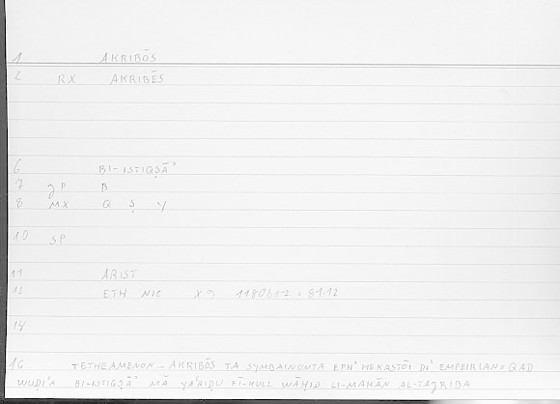 1 AKRIBŌS
2 RX AKRIBĒS
6 BI-ISTIQṢĀʾ
7 JP B
8 MX Q Ṣ Y
10 SP
11 ARIST
12 ETH NIC X 9 1180b17 : 81.12
14
16 TETHEAMENON - AKRIBŌS TA SYMBAINONTA EPH' HEKASTŌI DI' EMPEIRIAN QAD
WUḌIʿA BI-ISTIQṢĀʾ MĀ YAʿRIḌU FĪ-KULL WĀḤID LI-MAKĀN AL-TAJRIBA